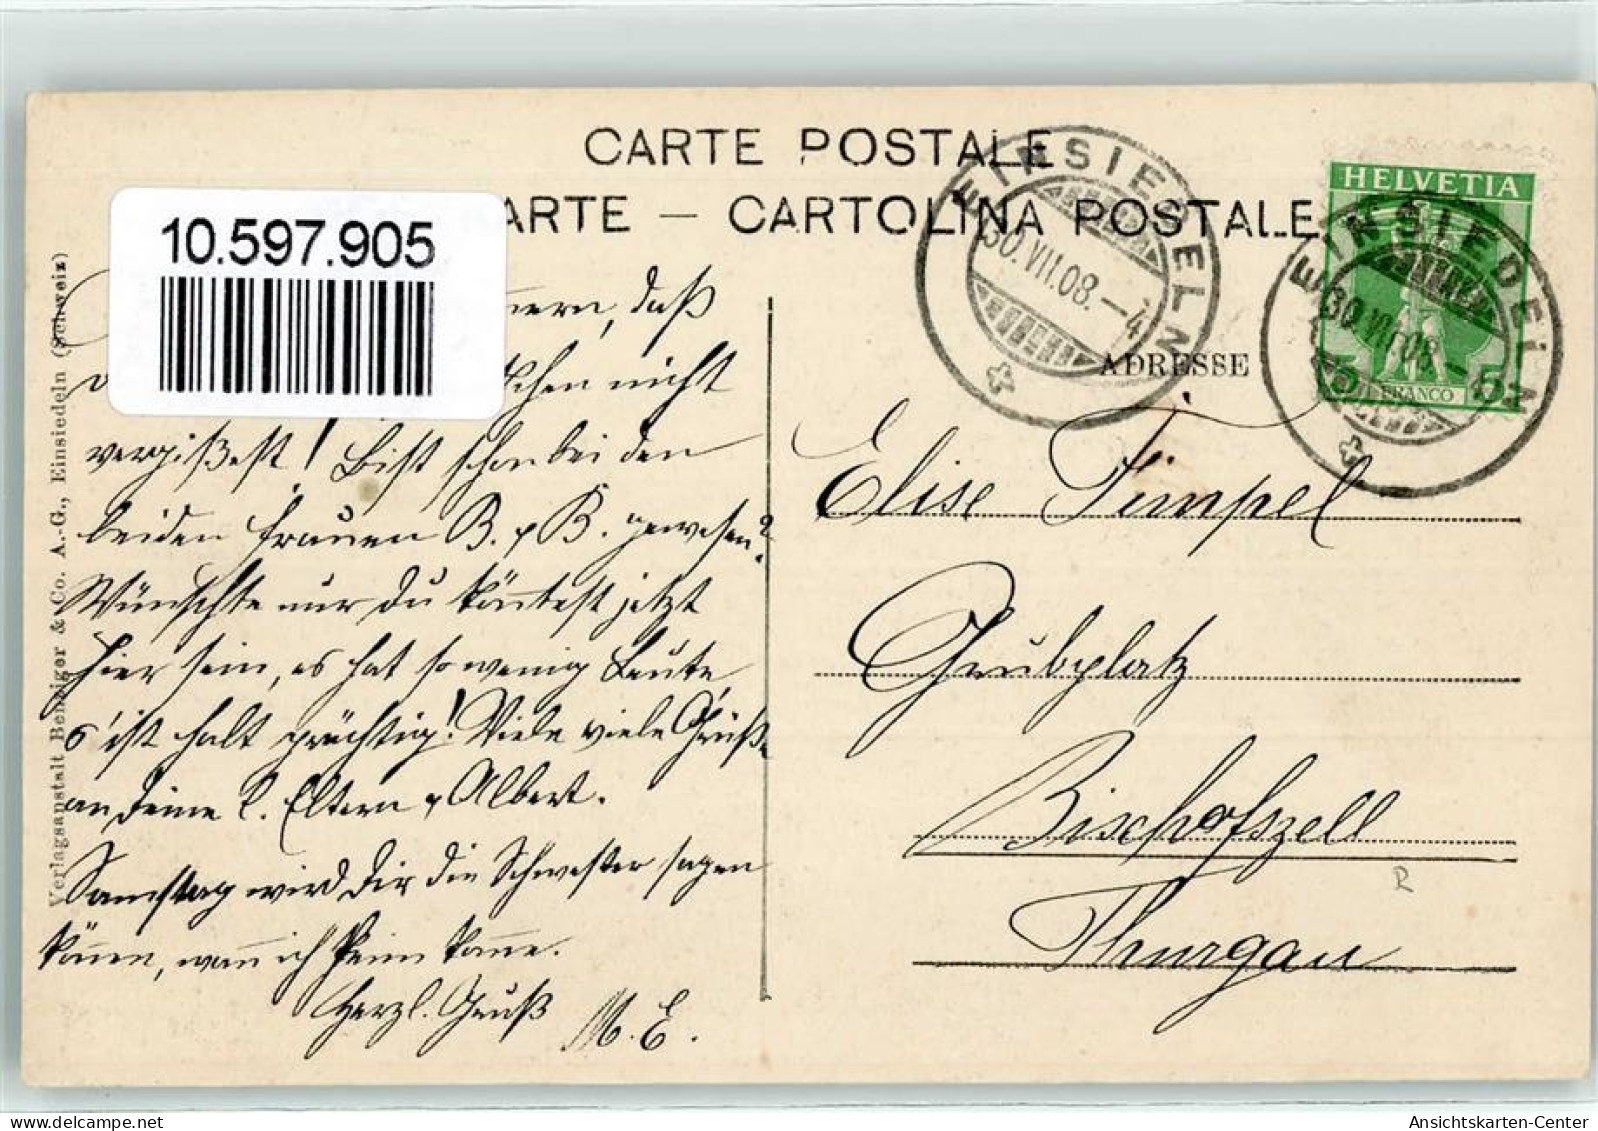 CARTE POSTALE
ARTE — CARTOLINA POSTALE
10.597.905
EINSIEDELN
30.VII.08.–4
HELVETIA
EINSIEDELN
30.VII.08.–4
5 FRANCO 5
ADRESSE
Verlagsanstalt Benziger & Co. A.-G., Einsiedeln (Schweiz)
daß
nicht
vergißest! Bist schon bei den
beiden Frauen B. & B. gewesen?
Wünschte nur du könntest jetzt
hier sein, es hat so wenig Leute,
s'ist halt prächtig! Viele viele Grüße
an deine l. Eltern & Albert.
Samstag wird dir die Schwester sagen
können, wann ich heim komme.
Herzl. Gruß M. E.
Elise Timpel
Grubplatz
Bischofszell
Thurgau
R
Ansichtskarten-Center